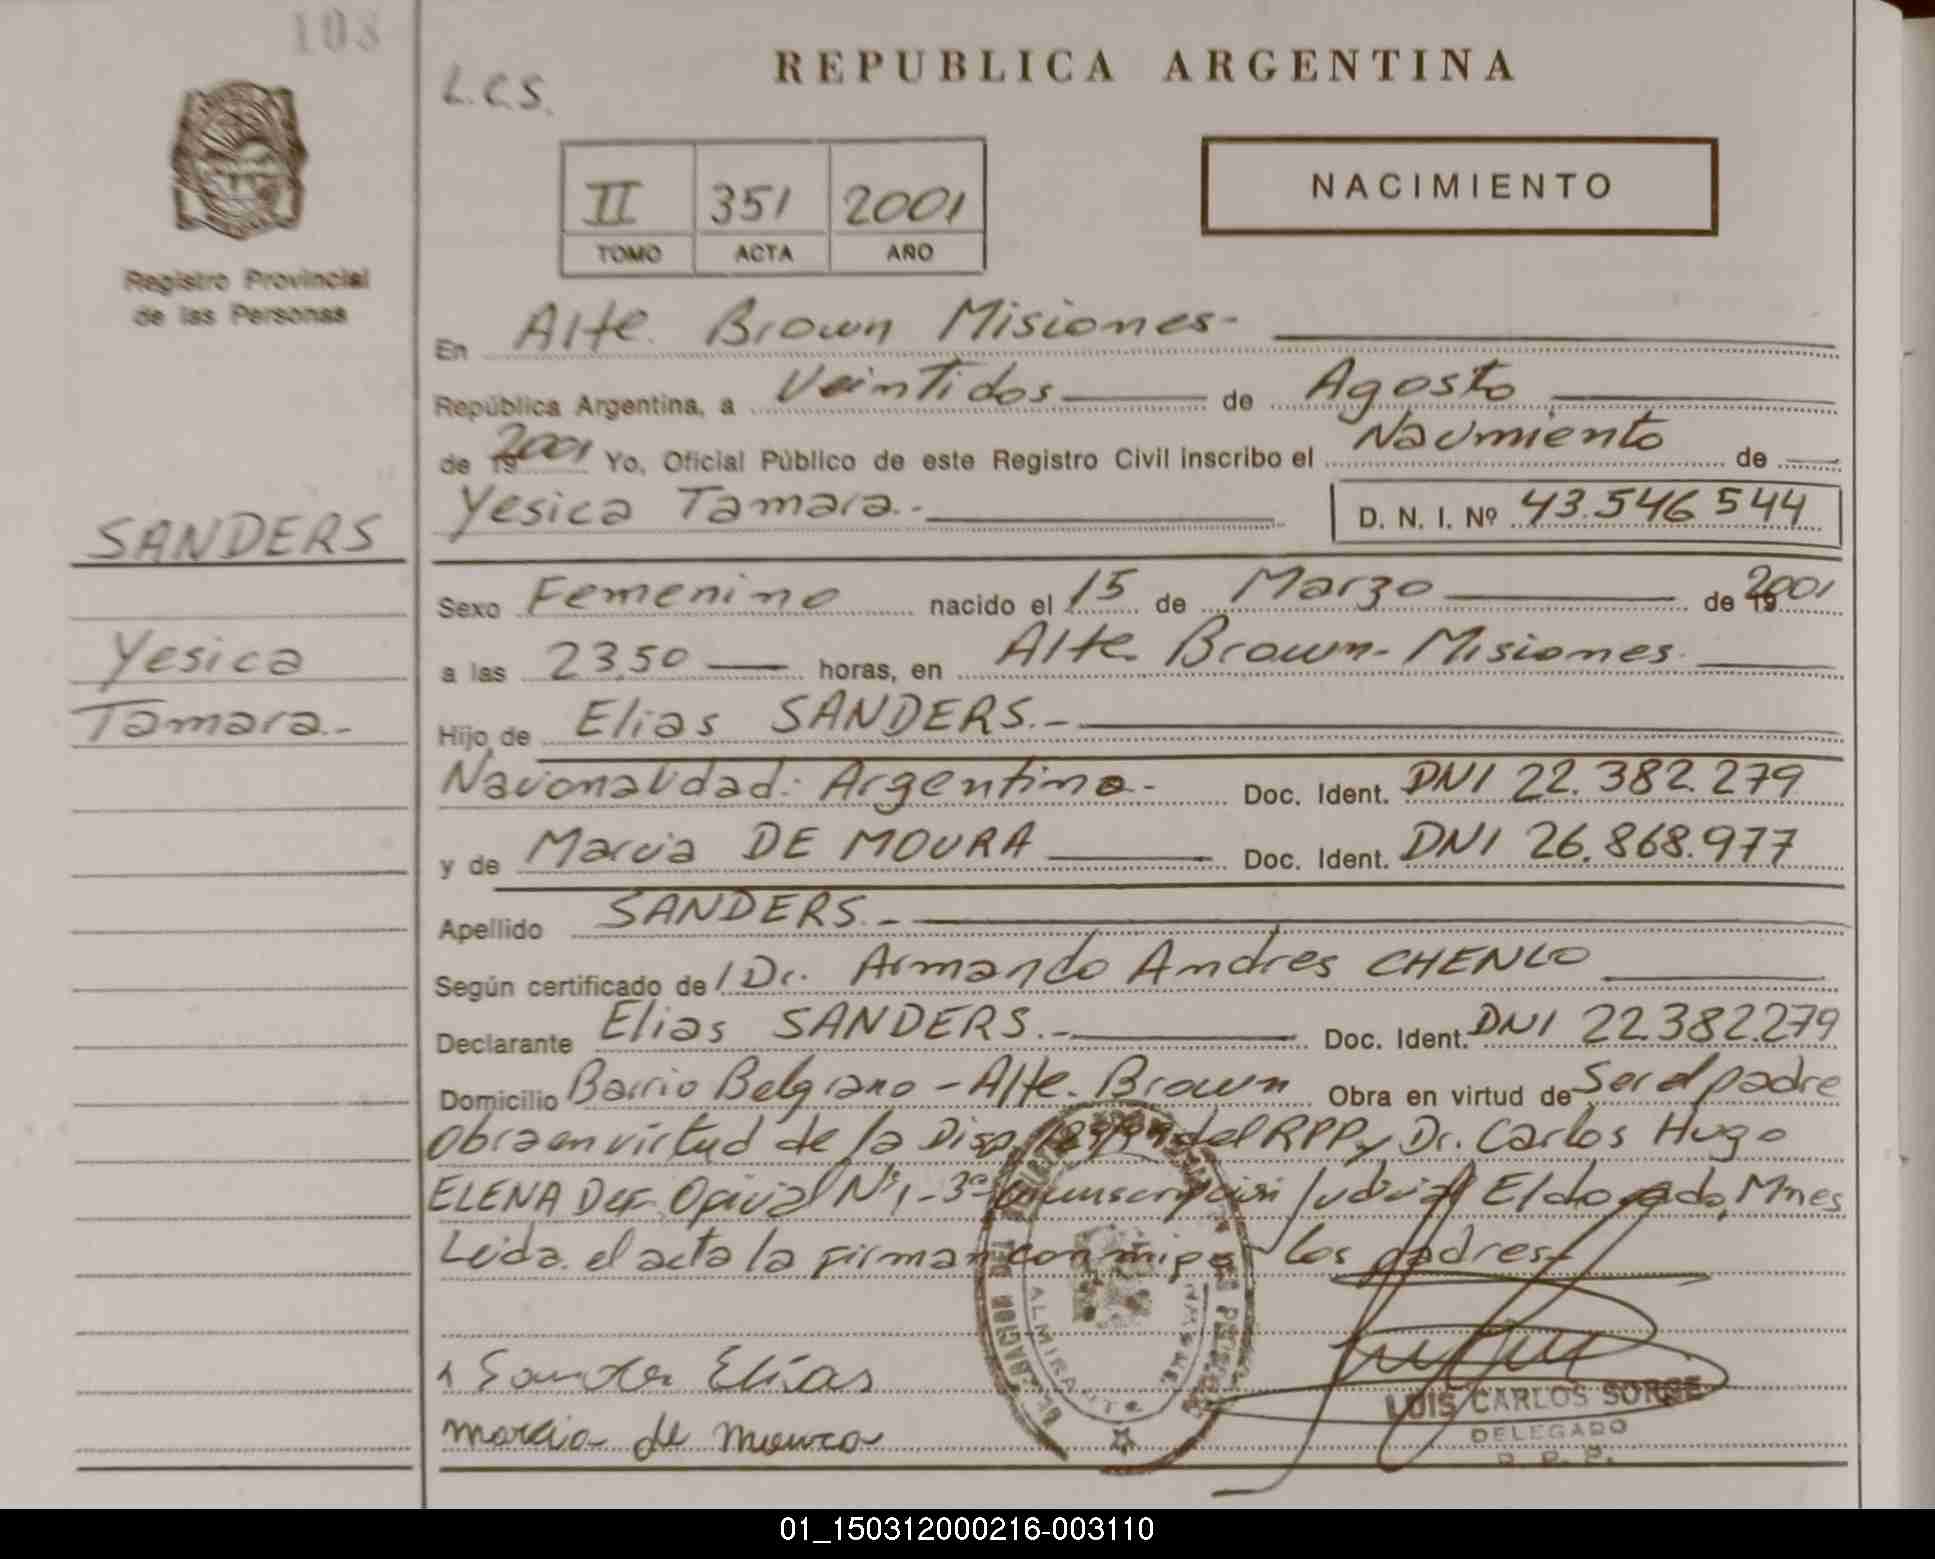 108
L.C.S.
REPUBLICA ARGENTINA
II 351 2001
TOMO ACTA AÑO
NACIMIENTO
Registro Provincial
de las Personas
En Alte. Brown Misiones-
República Argentina, a Veintidos de Agosto
de 19 2001 Yo, Oficial Público de este Registro Civil inscribo el Nacimiento de
Yesica Tamara.- D. N. I. Nº 43.546 544
SANDERS
Yesica
Tamara.-
Sexo Femenino nacido el 15 de Marzo de 19 2001
a las 23,50 horas, en Alte. Brown- Misiones
Hijo de Elias SANDERS.-
Nacionalidad: Argentina- Doc. Ident. DNI 22.382.279
y de Marcia DE MOURA Doc. Ident. DNI 26.868.977
Apellido SANDERS.-
Según certificado de Dr. Armando Andres CHENLO
Declarante Elias SANDERS.- Doc. Ident. DNI 22.382.279
Domicilio Barrio Belgrano - Alte. Brown Obra en virtud de Ser el padre
Obra en virtud de la Disp. del RPP y Dr. Carlos Hugo
ELENA Def. Oficial Nº1-3ª Circunscripción Judicial Eldorado, Mnes
Leida el acta la firman conmigo los padres-
Sander Elías
marcia de moura
ALMIRANTE
LUIS CARLOS SORGE
DELEGADO
R. P. P.
01_150312000216-003110